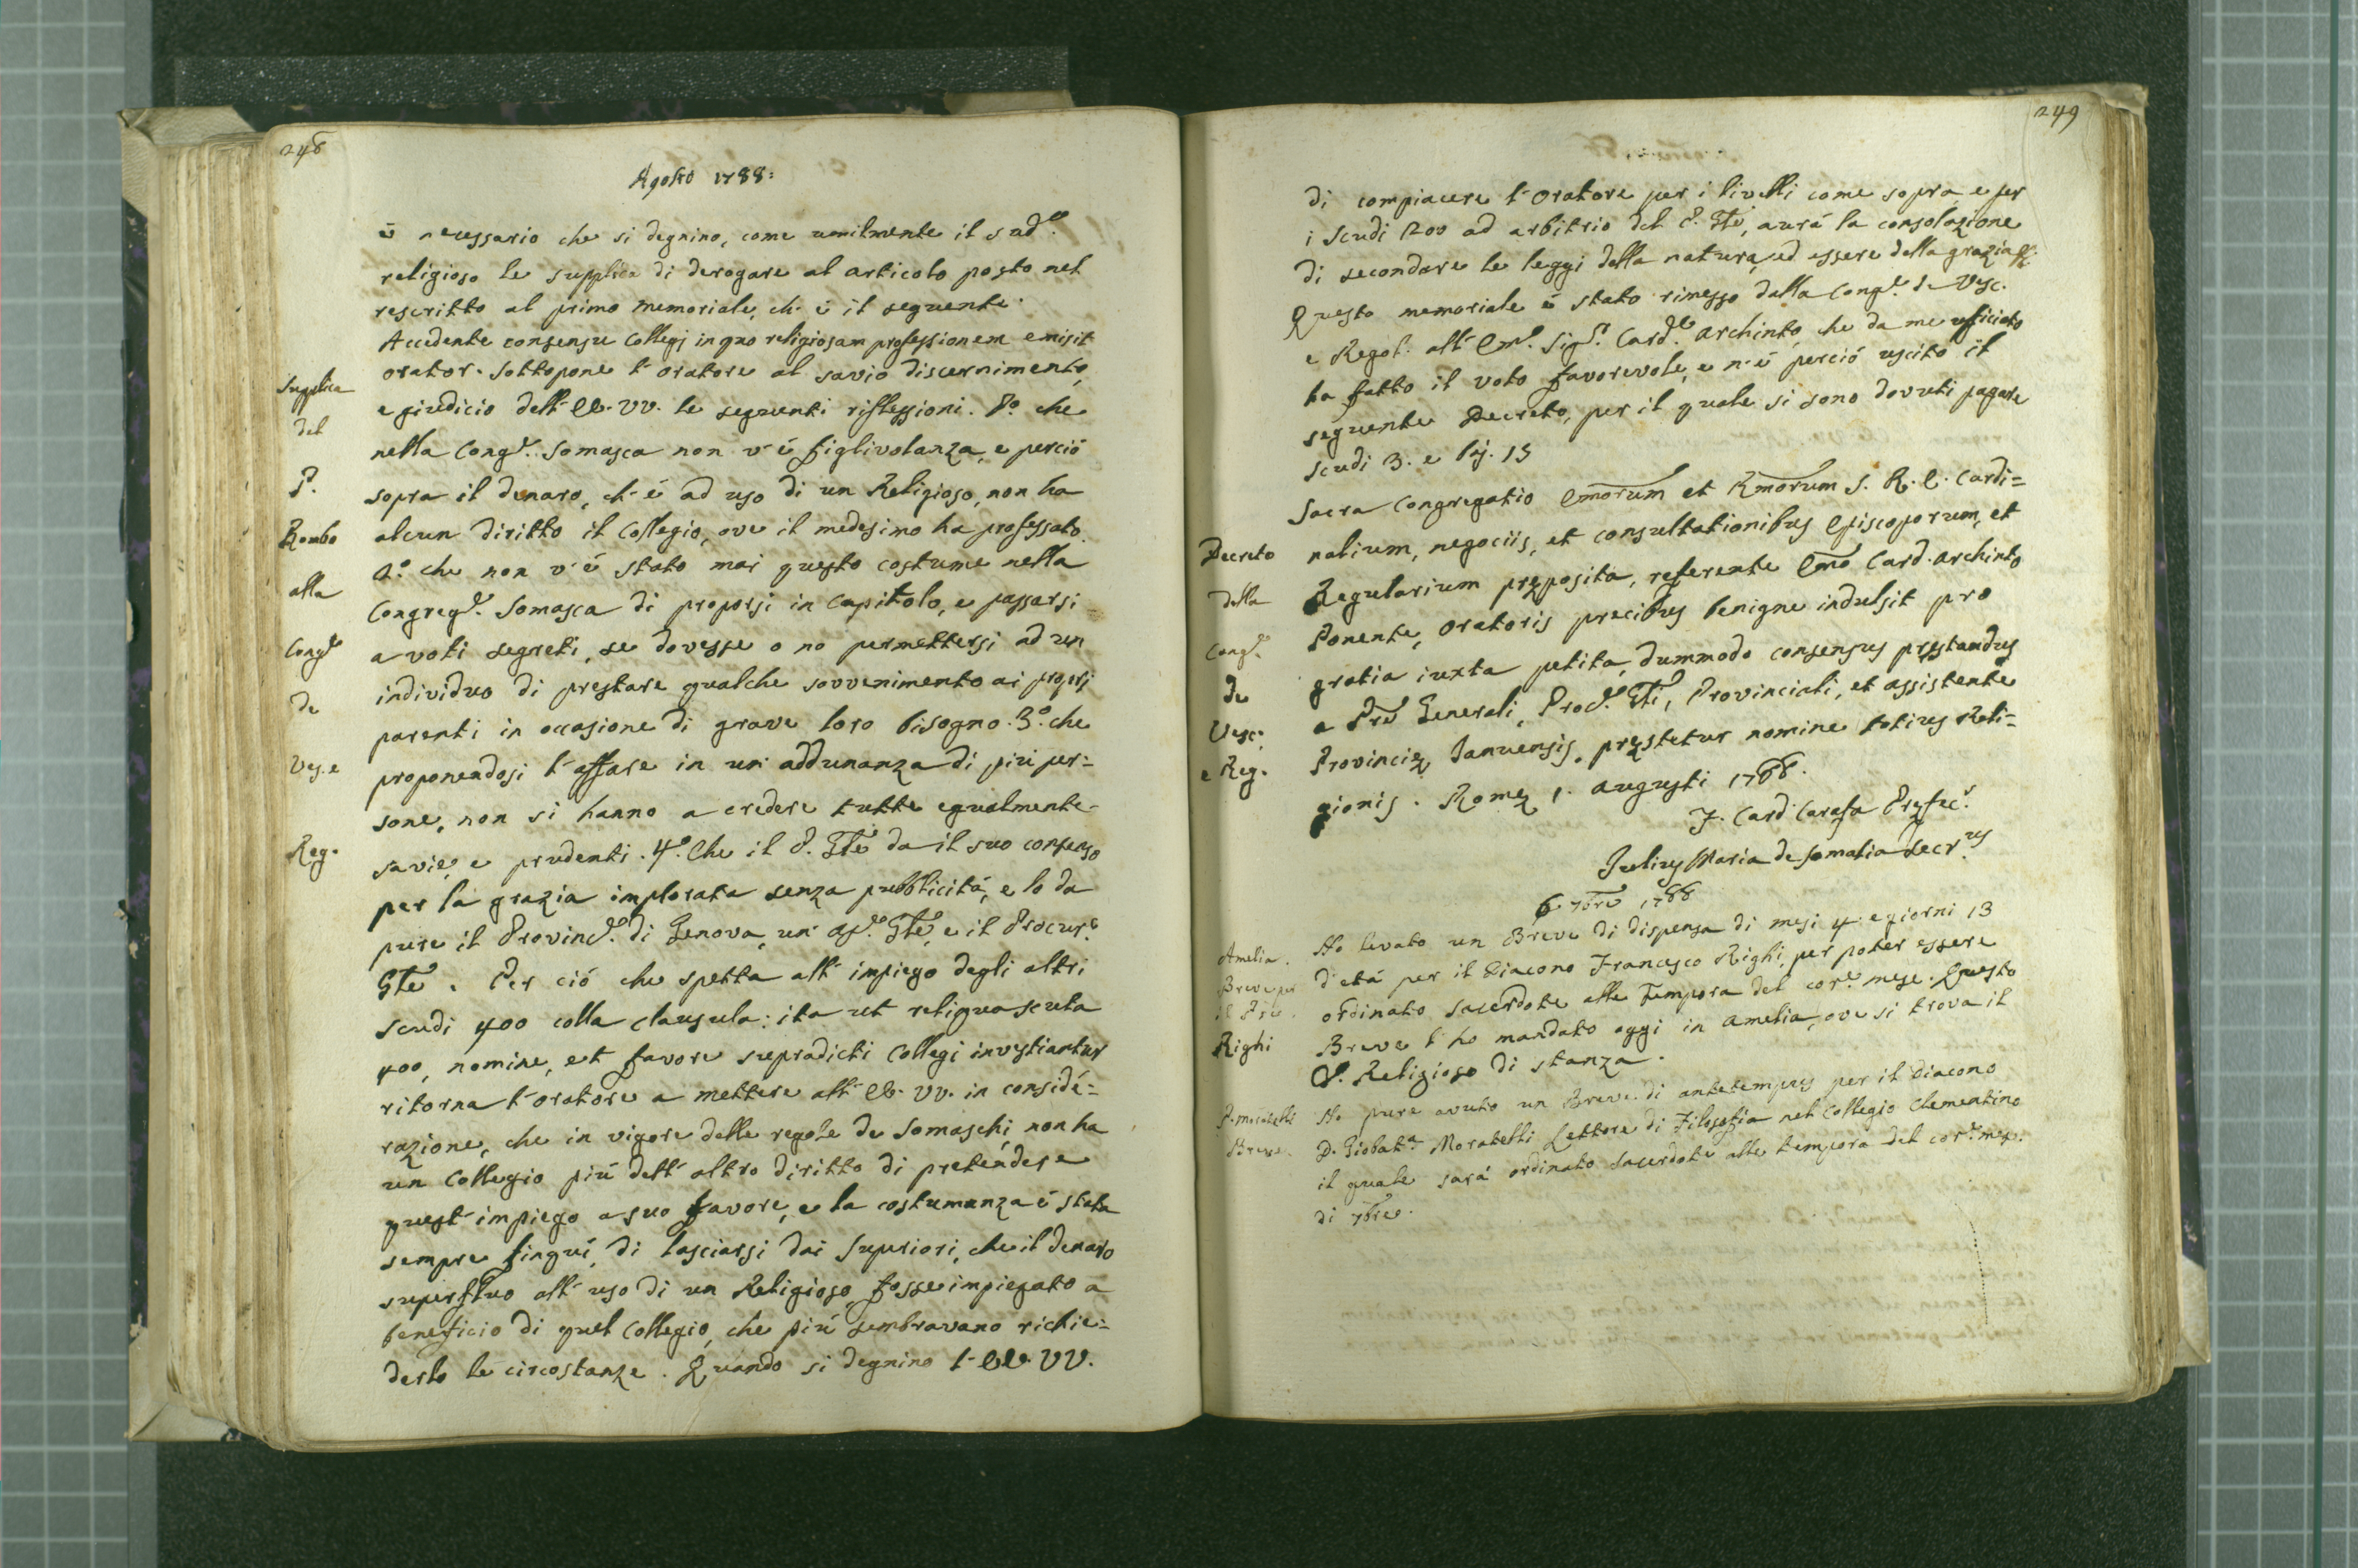 248
Agosto 1788:
è necessario che si degnino, come umilmente il sud.º
religioso le supplica di derogare al articolo posto nel
rescritto al primo memoriale, ch'è il seguente.
Accedente consensu Collegj in quo religiosam professionem emisit
orator. Sottopone l'oratore al savio discernimento,
e giudicio dell'EE. VV. le seguenti riflessioni. Pº che
nella Congne. Somasca non v'è figlivolanza, e perciò
sopra il denaro, ch'è ad uso di un Religioso, non ha
alcun diritto il Collegio, ove il medesimo ha professato.
2.º che non v'è stato mai questo costume nella
Congregne. Somasca di proporsi in Capitolo, e passarsi
a voti segreti, se dovesse o no permettersi ad un
individuo di prestare qualche sovvenimento ai proprj
parenti in occasione di grave loro bisogno. 3.º che
proponendosi l'affare in un'addunanza di più per=
sone, non si hanno a credere tutte egualmente
savie, e prudenti. 4.º Che il P. Gle da il suo consenso
per la grazia implorata senza pubblicità, e lo da
pure il Provinle. di Genova, un' Gle, e il Procure
Gle. Per ciò che spetta all'impiego degli altri
scudi 400 colla clausula: ita ut reliqua scuta
400, nomine, et favore supradicti Collegi investiantur
ritorna l'oratore a mettere all'EE. VV. in conside=
razione, che in vigore delle regole de Somaschi non ha
un Collegio più dell'altro diritto di pretendere
quest'impiego a suo favore, e la costumanza è stata
sempre finquì, di lasciarsi dai Superiori, che il denaro
superfluo all'uso di un Religioso, fosse impiegato a
beneficio di quel Collegio, che più sembravano richie=
derlo le circostanze. Quando si degnino l'EE. VV.
Supplica
del
P.
Rombo
alla
Congne
de
Ves. e
Reg.
249
di compiacere l'Oratore per i livelli come sopra, e per
i scudi 200 ad arbitrio del P. Gle, aurà la consolazione
di secondare le leggi della natura, ed essere della grazia &c.
Questo memoriale è stato rimesso dalla Congne. de Vesc.
e Regol. all'Emo. Sigr. Carde. Archinto, che da me ufficiato
ha fatto il voto favorevole, e n'è perciò uscito il
seguente Decreto, per il quale si sono dovuti pagare
scudi 3. e bj. 15
Sacra Congregatio Emorum et Rmorum S. R. E. Cardi=
nalium, negociis, et consultationibus Episcoporum, et
Regularium pręposita, referente Emo Card. Archinto
Ponente, Oratoris precibus benigne indulsit pro
gratia iuxta petita, dummodo consensus pręstandus
a Pre Generali, Proc.e Gli, Provinciali, et Assistente
Provincię Januensis, pręstetur nomine totius Reli=
gionis. Romę 1. Augusti 1788.
F. Card Carafa Pręfec.s
Julius Maria de Somalia Secr.rus
6 7bre 1788
Ho levato un Breve di dispensa di mesi 4. e giorni 13
d'età per il Diacono Francesco Righi, per poter essere
ordinato Sacerdote alle Tempora del core. mese. Questo
Breve l'ho mandato oggi in Amelia, ove si trova il
Religioso di stanza.
Ho pure avuto un Breve di antetempus per il Diacono
D. Giobatta Moratelli Lettore di Filosofia nel Collegio Clementino
il quale sarà ordinato Sacerdote alle tempora del core. mese.
di 7bre.
Decreto
della
Congne
de
Vesc:
e Reg.
Amelia.
Breve per
il
Righi
P. Moratelli
Breve.